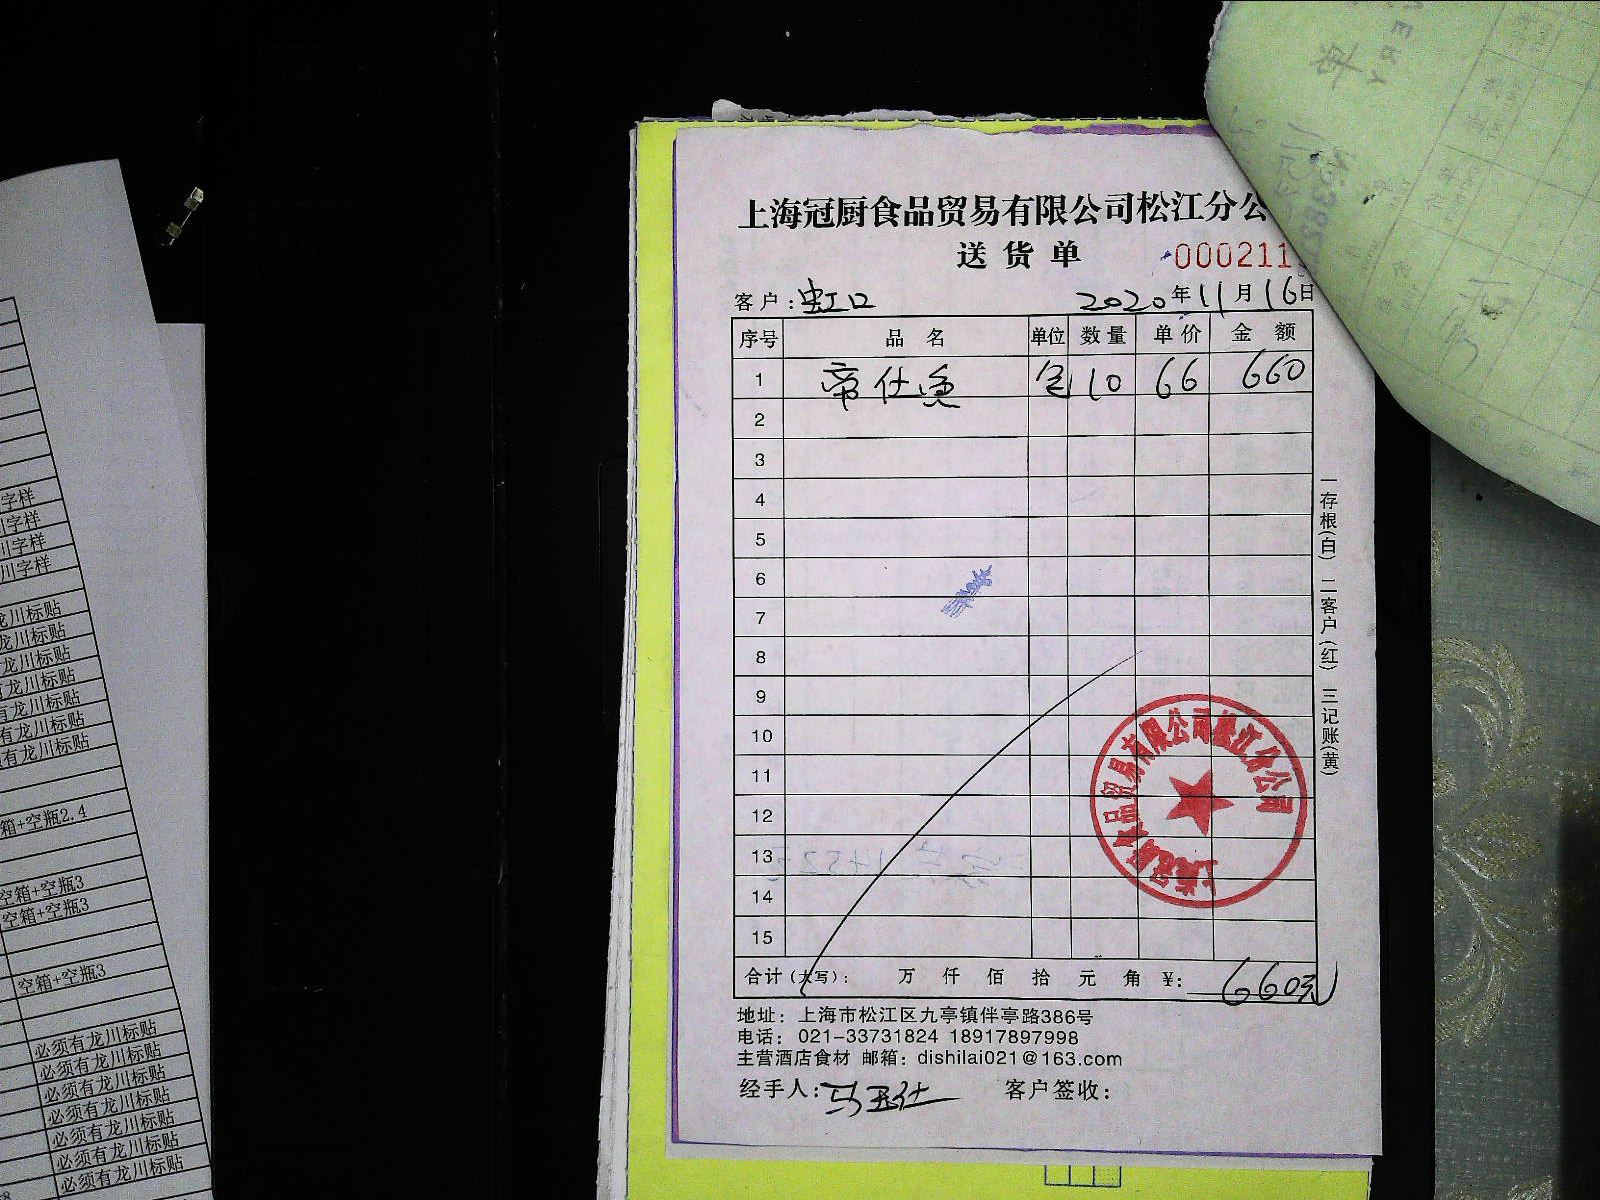 上海冠厨食品贸易有限公司松江分公
送货单 000211
客户：虹口 2020年11月16日
序号 品名 单位 数量 单价 金额
1 帝仕鱼 包 10 66 660
2
3
4
5
6
7
8
9
10
11
12
13
14
15
合计（大写）： 万 仟 佰 拾 元 角 ¥：660元
地址：上海市松江区九亭镇伴亭路386号
电话：021-33731824 18917897998
主营酒店食材 邮箱：dishilai021@163.com
经手人： 客户签收：
一存根(白) 二客户(红) 三记账(黄)
上海冠厨食品贸易有限公司松江分公司
字样
川字样
川字样
川字样
龙川标贴
龙川标贴
龙川标贴
有龙川标贴
有龙川标贴
有龙川标贴
有龙川标贴
箱+空瓶2.4
空箱+空瓶3
空箱+空瓶3
空箱+空瓶3
必须有龙川标贴
必须有龙川标贴
必须有龙川标贴
必须有龙川标贴
必须有龙川标贴
必须有龙川标贴
必须有龙川标贴